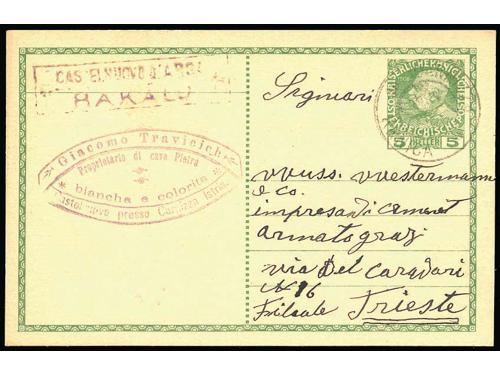 CASTELNUOVO D'ARSA
RAKALJ
Giacomo Travicich
Proprietario di cava Pietra
* bianca e colorita *
Castelnuovo presso Carnizza Istria
5 HELLER 5
Signiori
wuss. westermann
e co.
impresa di cement
armato graz
via Del Caradari
N 16
Filiale Trieste